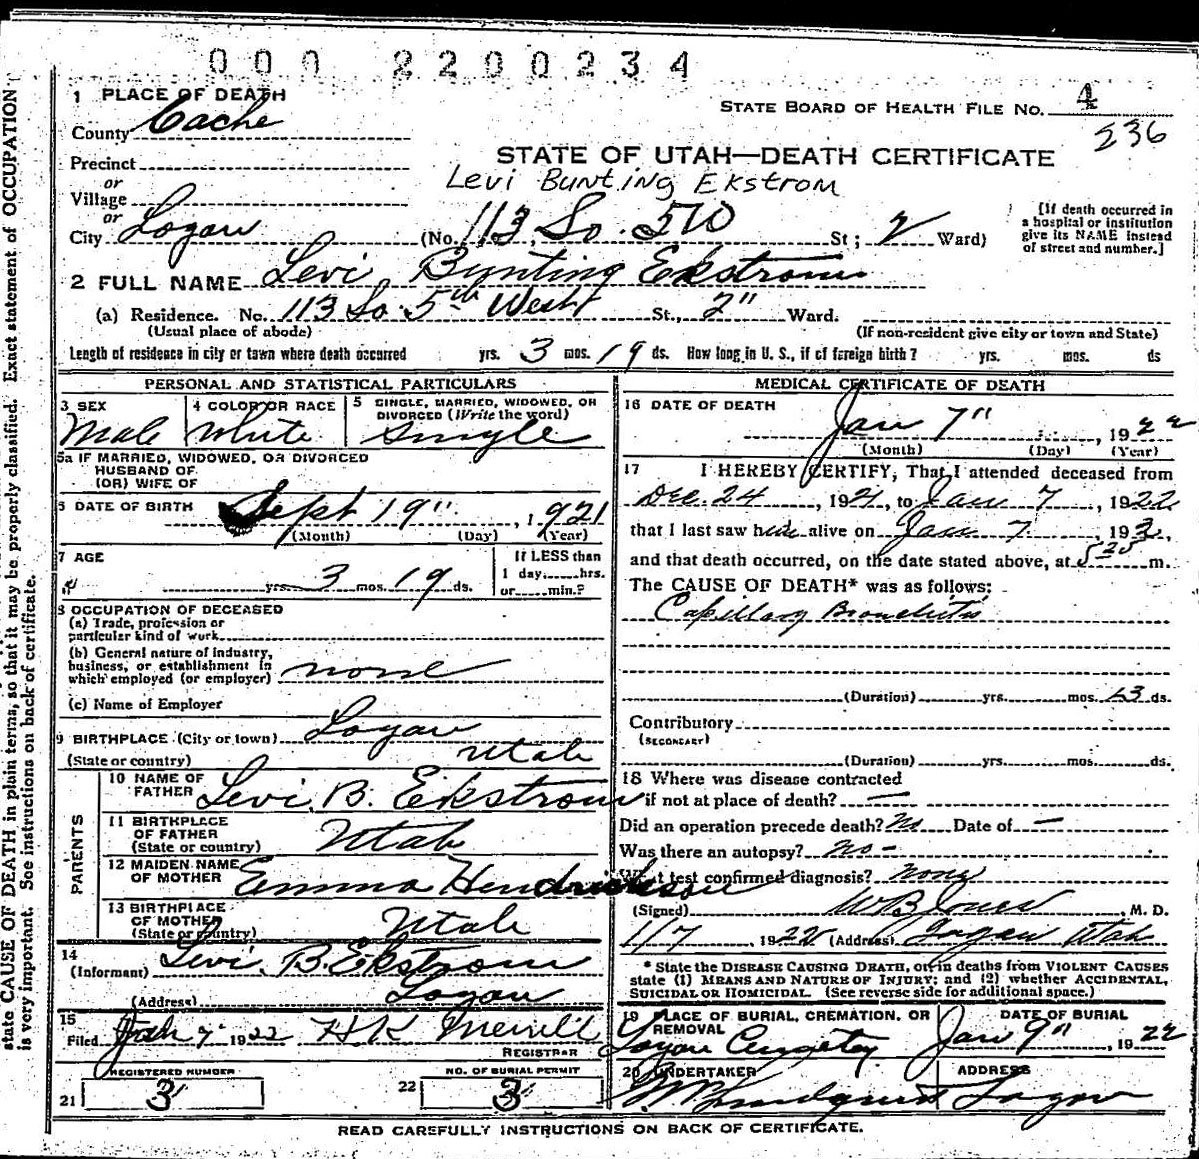 0 0 0 2 2 0 0 2 3 4
1 PLACE OF DEATH
STATE BOARD OF HEALTH FILE NO. 4
236
County Cache
Precinct
or
Village
or
City Logan
STATE OF UTAH—DEATH CERTIFICATE
Levi Bunting Ekstrom
(No. 113 So. 5 W St; 2 Ward)
[If death occurred in a hospital or institution give its NAME instead of street and number.]
2 FULL NAME Levi Bunting Ekstrom
(a) Residence. No. 113 So. 5th West St., 2" Ward.
(Usual place of abode) (If non-resident give city or town and State)
Length of residence in city or town where death occurred yrs. 3 mos. 19 ds. How long in U. S., if of foreign birth? yrs. mos. ds
PERSONAL AND STATISTICAL PARTICULARS
3 SEX Male
4 COLOR OR RACE White
5 SINGLE, MARRIED, WIDOWED, OR DIVORCED (Write the word) Single
5a IF MARRIED, WIDOWED, OR DIVORCED
HUSBAND OF
(OR) WIFE OF
6 DATE OF BIRTH Sept 19", 1921
(Month) (Day) (Year)
7 AGE yrs. 3 mos. 19 ds.
If LESS than
1 day,......hrs.
or......min.?
8 OCCUPATION OF DECEASED
(a) Trade, profession or
particular kind of work
(b) General nature of industry,
business, or establishment in
which employed (or employer) none
(c) Name of Employer
9 BIRTHPLACE (City or town) Logan
(State or country) Utah
PARENTS
10 NAME OF FATHER Levi. B. Ekstrom
11 BIRTHPLACE OF FATHER (State or country) Utah
12 MAIDEN NAME OF MOTHER Emma Hendrickson
13 BIRTHPLACE OF MOTHER (State or country) Utah
14
(Informant) Levi. B. Ekstrom
(Address) Logan
15
Filed 7" 1922 H K Merrill
REGISTRAR
REGISTERED NUMBER
21 3
NO. OF BURIAL PERMIT
22 3
MEDICAL CERTIFICATE OF DEATH
16 DATE OF DEATH
Jan 7", 1922
(Month) (Day) (Year)
17 I HEREBY CERTIFY, That I attended deceased from
Dec. 24, 1921, to Jan 7, 1922
that I last saw him alive on Jan 7, 192,
and that death occurred, on the date stated above, at m.
The CAUSE OF DEATH* was as follows:
Capillary Bronchitis
(Duration) yrs. mos. 13 ds.
Contributory
(SECONDARY)
(Duration) yrs. mos. ds.
18 Where was disease contracted
if not at place of death? —
Did an operation precede death? No Date of —
Was there an autopsy? no -
What test confirmed diagnosis? none
(Signed) W B Jones, M. D.
1/7, 1922 (Address) Logan Utah
* State the DISEASE CAUSING DEATH, or in deaths from VIOLENT CAUSES
state (1) MEANS AND NATURE OF INJURY; and (2) whether ACCIDENTAL,
SUICIDAL OR HOMICIDAL. (See reverse side for additional space.)
19 PLACE OF BURIAL, CREMATION, OR REMOVAL
Logan Cemetery
DATE OF BURIAL
Jan 9", 1922
20 UNDERTAKER
Lindquist
ADDRESS
Logan
READ CAREFULLY INSTRUCTIONS ON BACK OF CERTIFICATE.
state CAUSE OF DEATH in plain terms, so that it may be properly classified. Exact statement of OCCUPATION
is very important. See instructions on back of certificate.